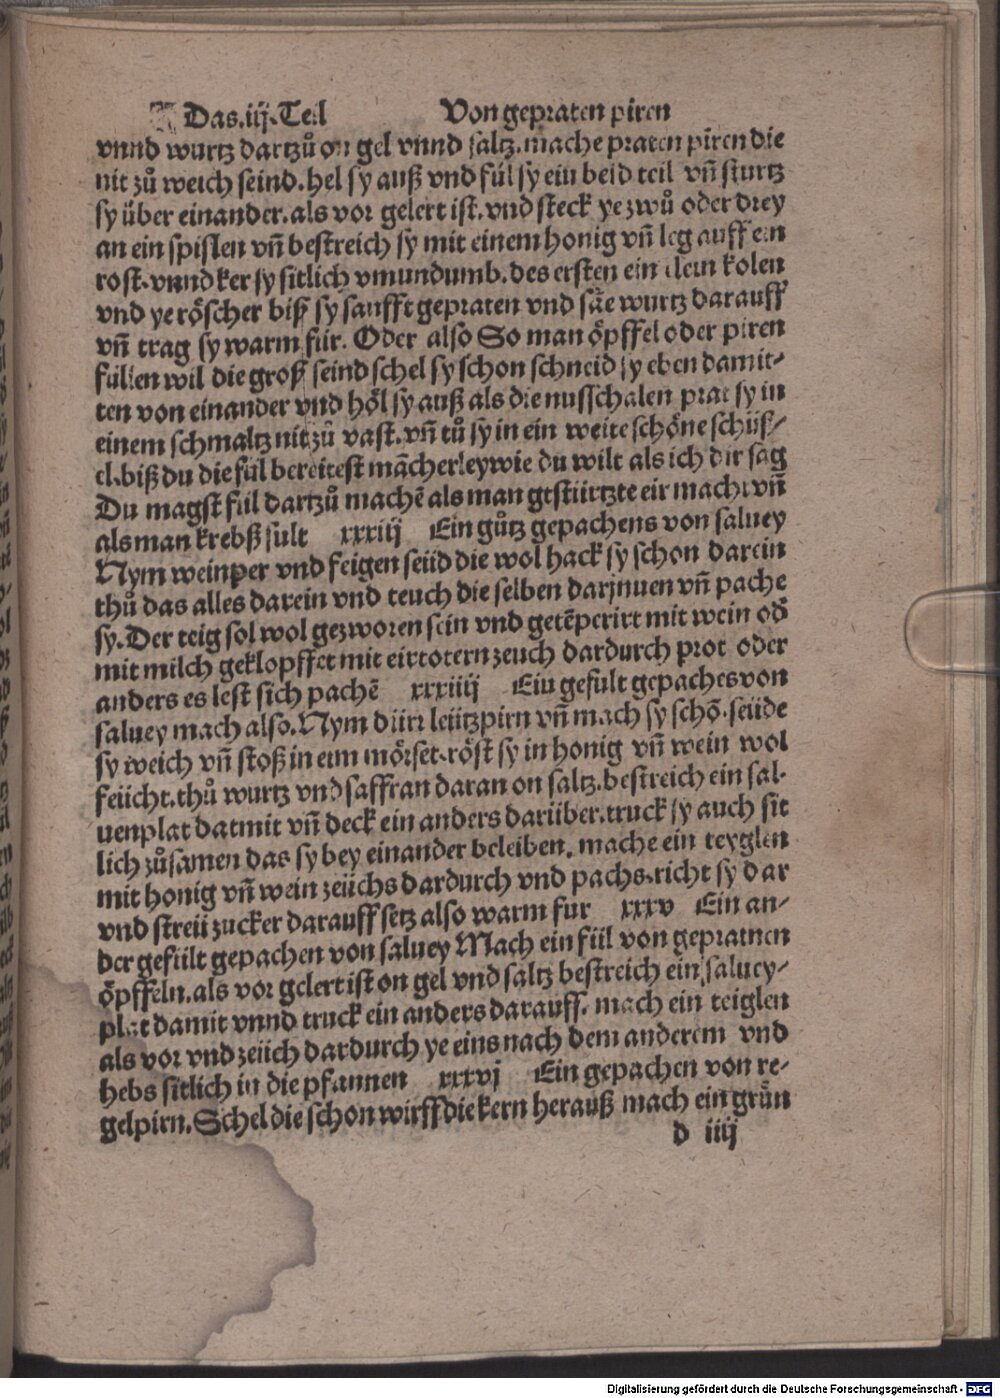 Das.iij.Teil Von gepraten piren
vnnd wurtz dartzů on gel vnnd saltz.mache praten piren die
nit zů weich seind.hel sy auß vnd fül sy ein beid teil vñ sturtz
sy über einander.als vor gelert ist.vnd steck ye zwů oder drey
an ein spislen vñ bestreich sy mit einem honig vñ leg auff ein
rost.vnnd ker sy sitlich vmundumb.des ersten ein klein kolen
vnd ye röscher biß sy saufft gepraten vnd säe wurtz darauff
vñ trag sy warm für. Oder also So man öpffel oder piren
füllen wil die groß seind schel sy schon schneid sy eben damit-
ten von einander vnd höl sy auß als die nusschalen prat sy in
einem schmaltz nit zů vast.vñ tů sy in ein weite schöne schüs-
el.biß du die fül bereitest mãcherley wie du wilt als ich dir sag
Du magst fül dartzů machẽ als man gestürtzte eir macht vñ
als man krebß fült xxxiij Ein gůtz gepachens von saluey
Nym weinper vnd feigen seüd die wol hack sy schon darein
thů das alles darein vnd teuch die selben darjnuen vñ pache
sy.Der teig sol wol gezworen sein vnd getẽperirt mit wein od̃
mit milch geklopffet mit eirtotern zeuch dardurch prot oder
anders es lest sich pachẽ xxxiiij Ein gefult gepaches von
saluey mach also.Nym dürr leützpirn vñ mach sy schõ.seüde
sy weich vñ stoß in eim mörser.röst sy in honig vñ wein wol
feücht.thů wurtz vnd saffran daran on saltz.bestreich ein sal-
uenplat datmit vñ deck ein anders darüber.truck sy auch sit
lich zůsamen das sy bey einander beleiben. mache ein teyglen
mit honig vñ wein zeüchs dardurch vnd pachs.richt sy dar
vnd streü zucker darauff setz also warm fur xxxv Ein an-
der gefült gepachen von saluey Mach ein fül von gepratnen
öpffeln.als vor gelert ist on gel vnd saltz bestreich ein saluey-
plat damit vnnd truck ein anders darauff. mach ein teiglen
als vor vnd zeüch dardurch ye eins nach dem anderem vnd
hebs sitlich in die pfannen xxxvj Ein gepachen von re-
gelpirn.Schel die schon wirff die kern herauß mach ein grün
d iiij
Digitalisierung gefördert durch die Deutsche Forschungsgemeinschaft - DFG